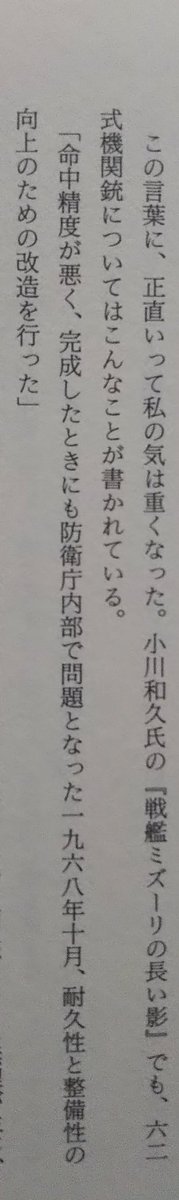 この言葉に、正直いって私の気は重くなった。小川和久氏の『戦艦ミズーリの長い影』でも、六二
式機関銃についてはこんなことが書かれている。
「命中精度が悪く、完成したときにも防衛庁内部で問題となった一九六八年十月、耐久性と整備性の
向上のための改造を行った」